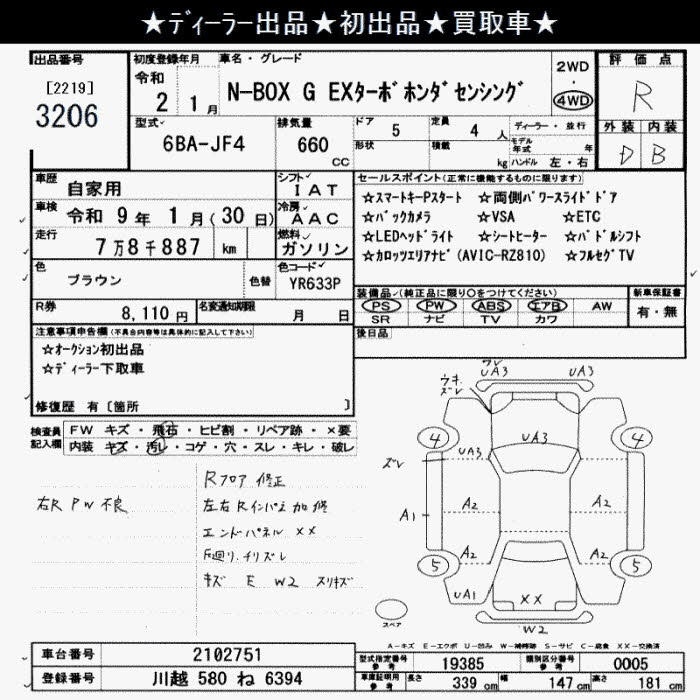 ★ディーラー出品★初出品★買取車★
出品番号
[2219]
3206
初度登録年月
令和
2 年 1 月
車名・グレード
N-BOX G EXターボホンダセンシング
2WD
・
4WD
評価点
R
外装 内装
D B
型式
6BA-JF4
排気量
660
cc
ドア 5
形状
定員 4 人
積載 kg
ディーラー・並行
モデル年式 年
ハンドル 左・右
車歴 自家用
車検 令和 9 年 1 月(30 日)
走行 7 万 8 千 887 km
色 ブラウン
色替
シフト IAT
冷房 AAC
燃料 ガソリン
色コード
YR633P
R券 8,110 円
名変通知期限 月 日
セールスポイント(正常に機能するものに限ります)
☆スマートキーPスタート ☆両側パワースライドドア
☆バックカメラ ☆VSA ☆ETC
☆LEDヘッドライト ☆シートヒーター ☆パドルシフト
☆カロッツェリアナビ(AVIC-RZ810) ☆フルセグTV
装備品(純正品に限り○をつけてください)
PS PW ABS エアB AW
SR ナビ TV カワ
新車保証書
有・無
後日品
注意事項申告欄(不具合内容等は具体的に記入して下さい)
☆オークション初出品
☆ディーラー下取車
修復歴 有〔箇所 〕
検査員
記入欄
FW キズ・飛石・ヒビ割・リペア跡・×要
内装 キズ・汚レ・コゲ・穴・スレ・キレ・破レ
右R PW 不良
Rフロア 修正
左右Rインパネ 加修
エンドパネル XX
下廻り、チリズレ
キズ E W2 スリキズ
ズレ
UA3 UA3
ウキ
ズレ
4 4
UA3 UA3
ズレ
A1 A2 A2
A2 A2
5 5
UA1
XX
W2
スペア
A-キズ E-エクボ U-凹み W-補修跡 S-サビ C-腐食 XX-交換済
車台番号 2102751
登録番号 川越 580 ね 6394
型式指定番号
参考
19385
類別区分番号
参考
0005
車庫証明用
参考
長さ 339 cm 幅 147 cm 高さ 181 cm